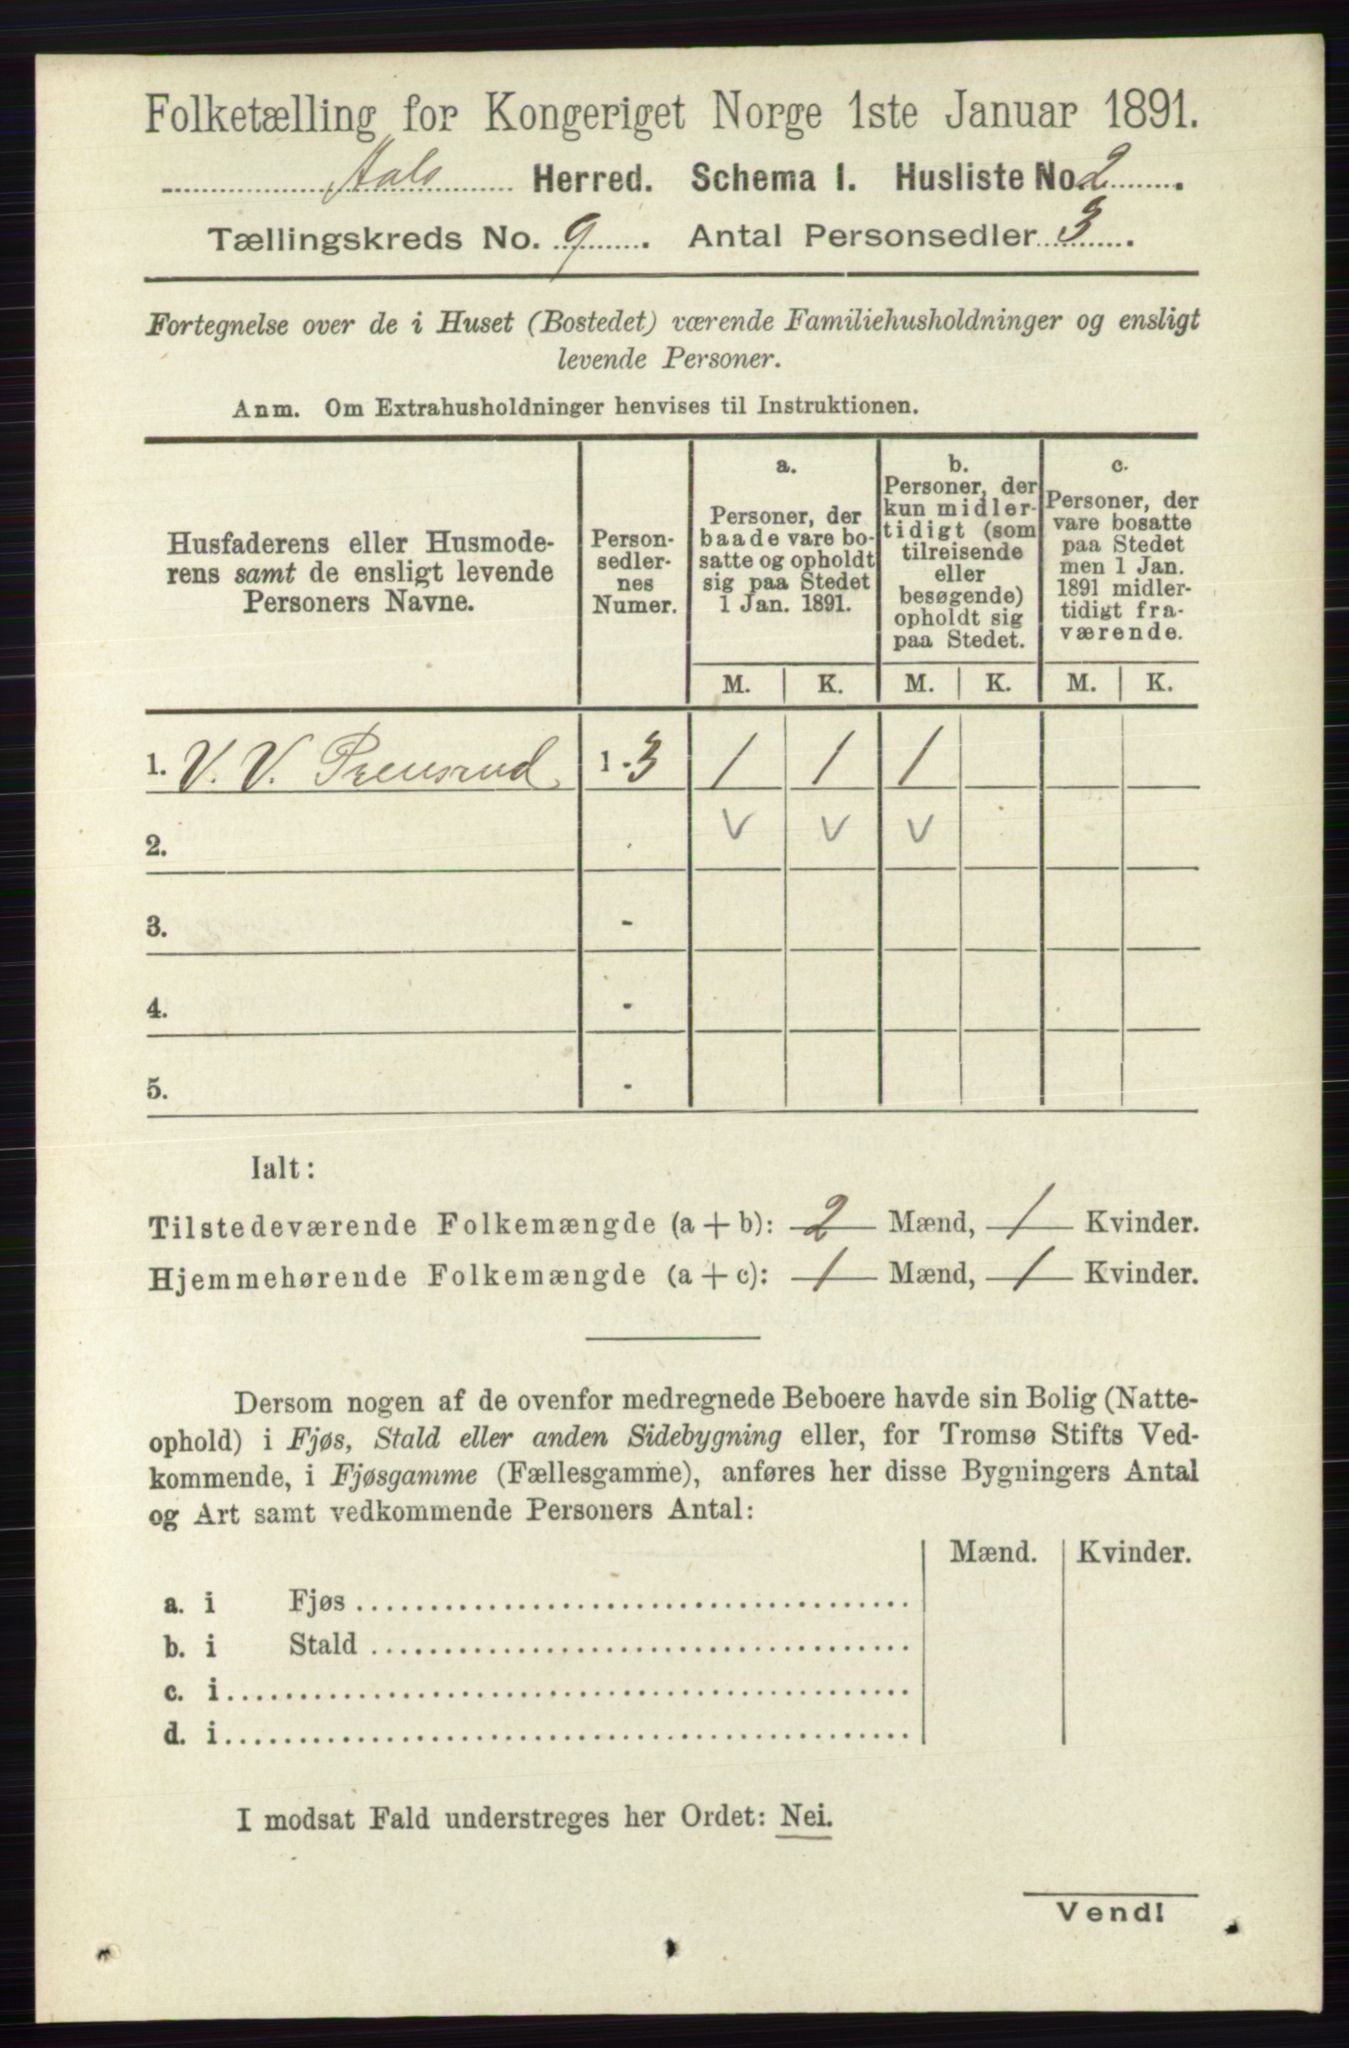 Folketælling for Kongeriget Norge 1ste Januar 1891.
Aals Herred. Schema I. Husliste No. 2.
Tællingskreds No. 9. Antal Personsedler 3.
Fortegnelse over de i Huset (Bostedet) værende Familiehusholdninger og ensligt
levende Personer.
Anm. Om Extrahusholdninger henvises til Instruktionen.
Husfaderens eller Husmode-
rens samt de ensligt levende
Personers Navne.
Person-
sedler-
nes
Numer.
a.
Personer, der
baade vare bo-
satte og opholdt
sig paa Stedet
1 Jan. 1891.
b.
Personer, der
kun midler-
tidigt (som
tilreisende
eller
besøgende)
opholdt sig
paa Stedet.
c.
Personer, der
vare bosatte
paa Stedet
men 1 Jan.
1891 midler-
tidigt fra-
værende.
M. K. M. K. M. K.
1. V. V. 1-3 1 1 1
2. - V V V
3. -
4. -
5. -
Ialt:
Tilstedeværende Folkemængde (a + b): 2 Mænd, 1 Kvinder.
Hjemmehørende Folkemængde (a + c): 1 Mænd, 1 Kvinder.
Dersom nogen af de ovenfor medregnede Beboere havde sin Bolig (Natte-
ophold) i Fjøs, Stald eller anden Sidebygning eller, for Tromsø Stifts Ved-
kommende, i Fjøsgamme (Fællesgamme), anføres her disse Bygningers Antal
og Art samt vedkommende Personers Antal:
Mænd. Kvinder.
a. i Fjøs
b. i Stald
c. i
d. i
I modsat Fald understreges her Ordet: Nei.
Vend!